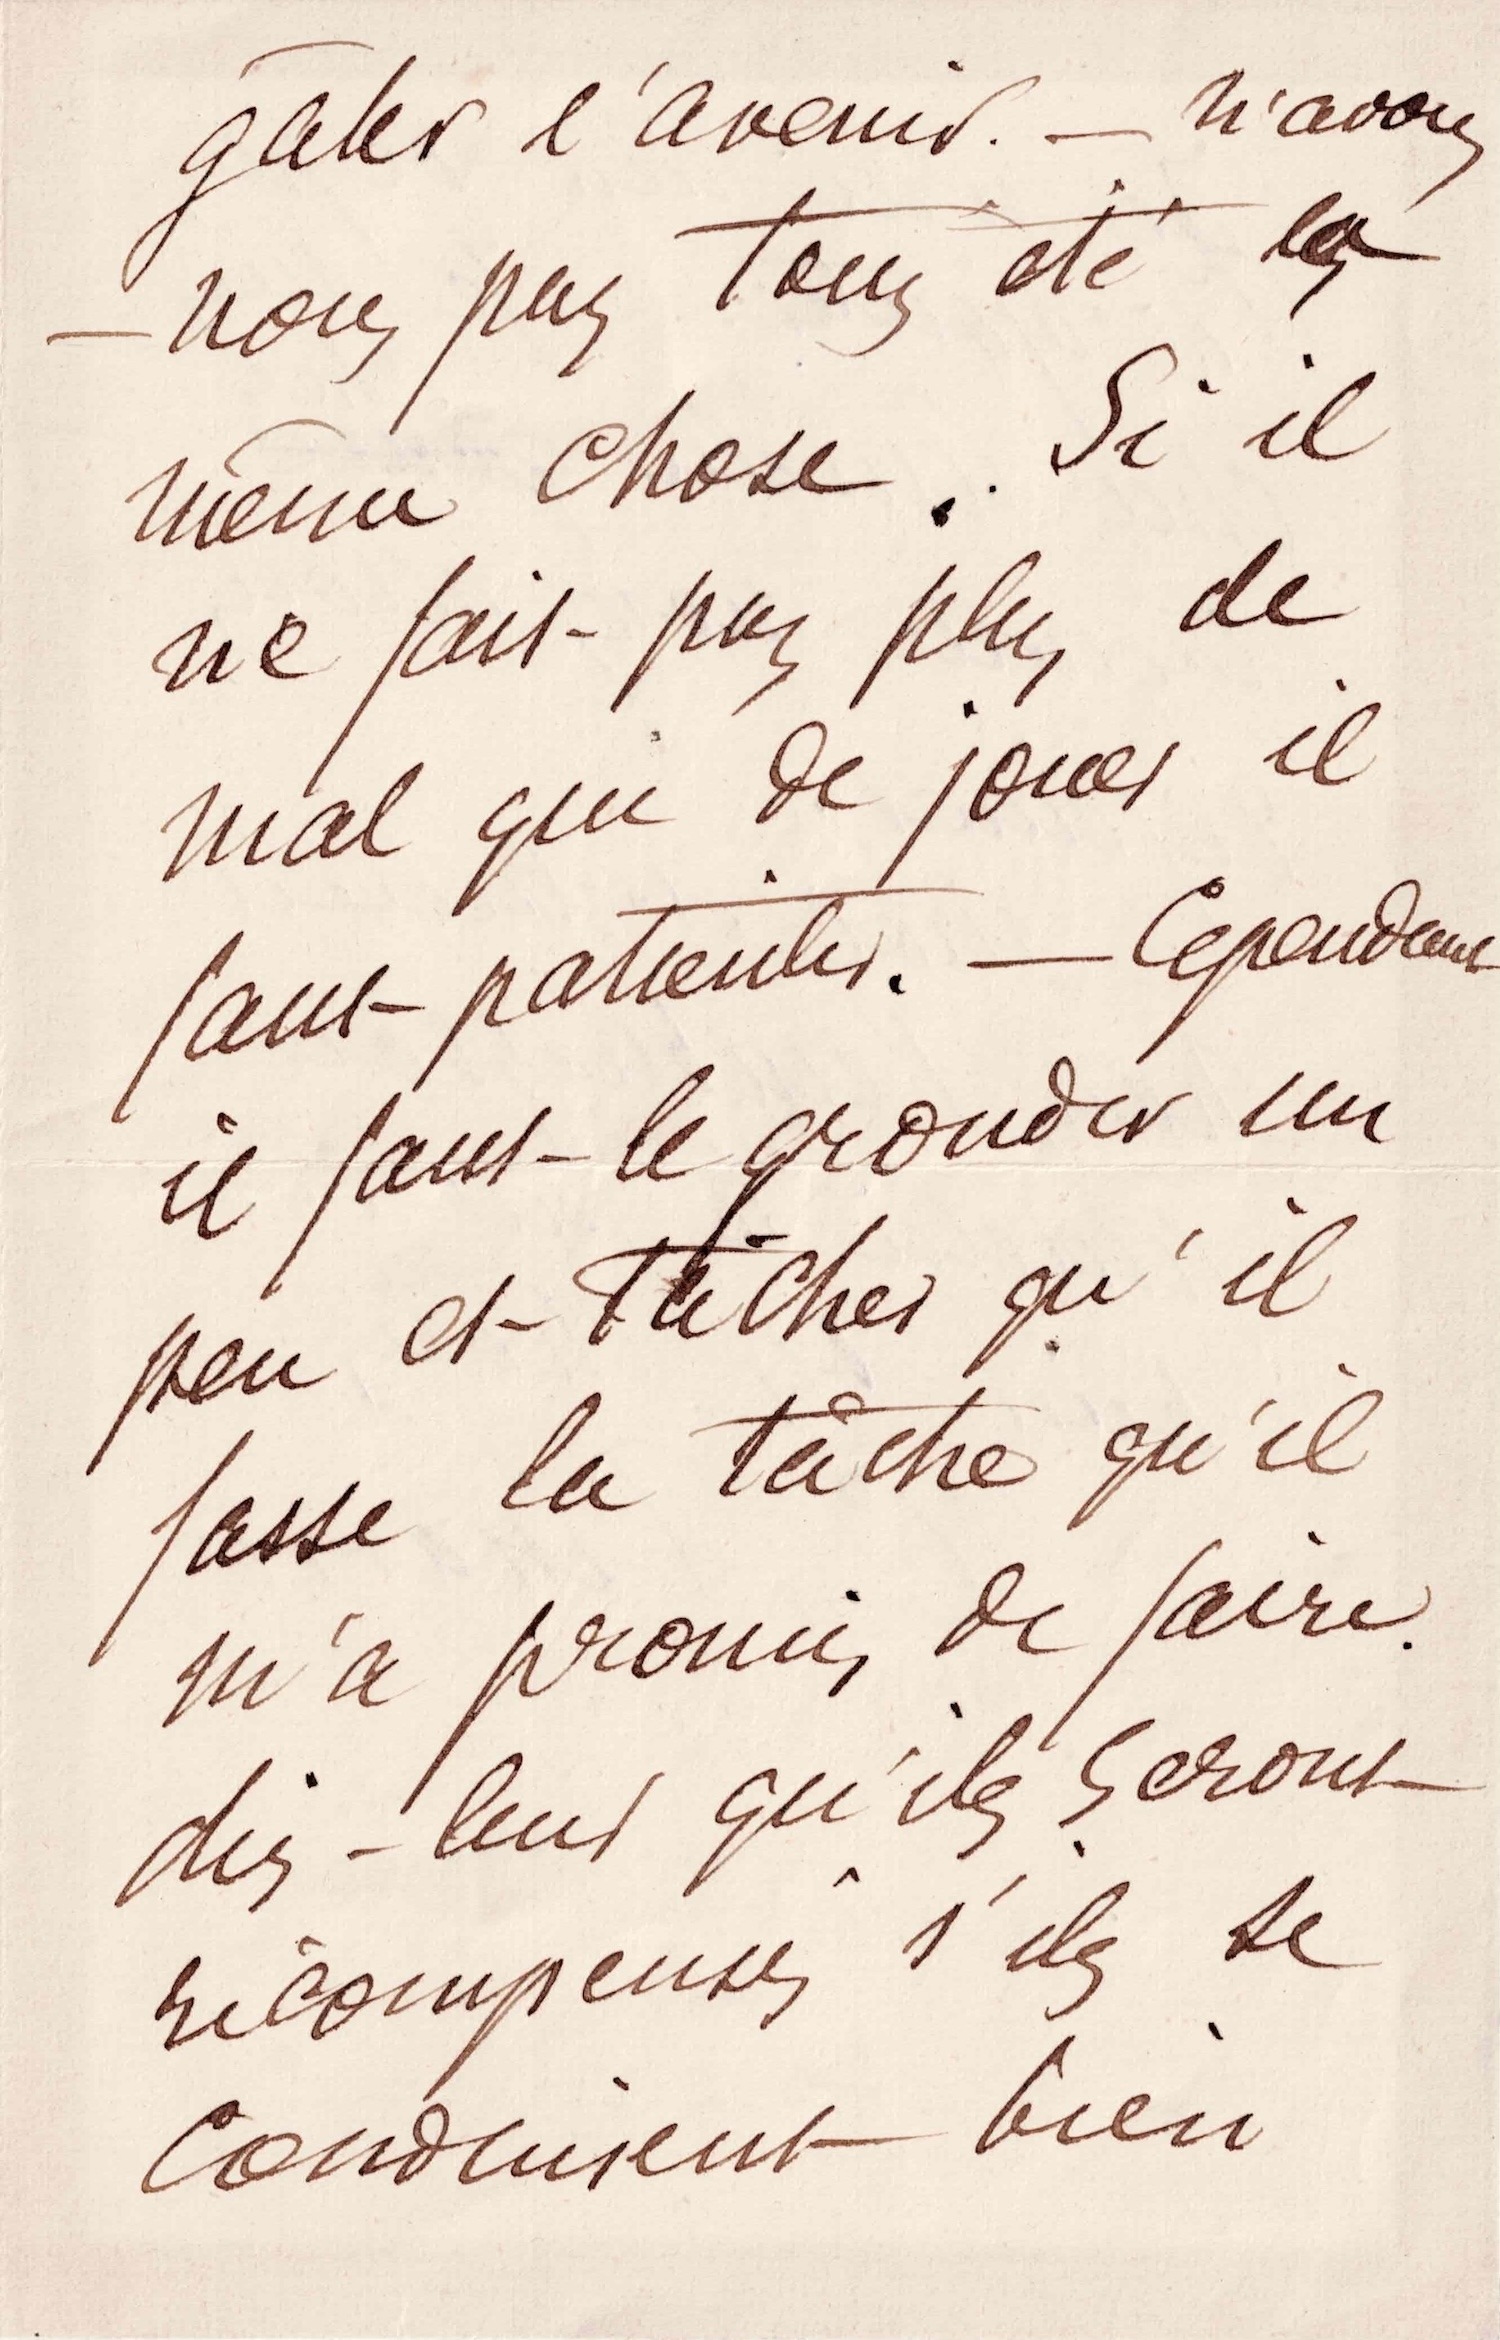 gâter l'avenir. — n'avons
— nous pas tous été la
même chose. Si il
ne fait pas plus de
mal que de jouer il
faut patienter. — Cependant
il faut le gronder un
peu et tâcher qu'il
fasse la tâche qu'il
m'a promis de faire.
dis-leur qu'ils seront
récompensés s'ils se
conduisent bien